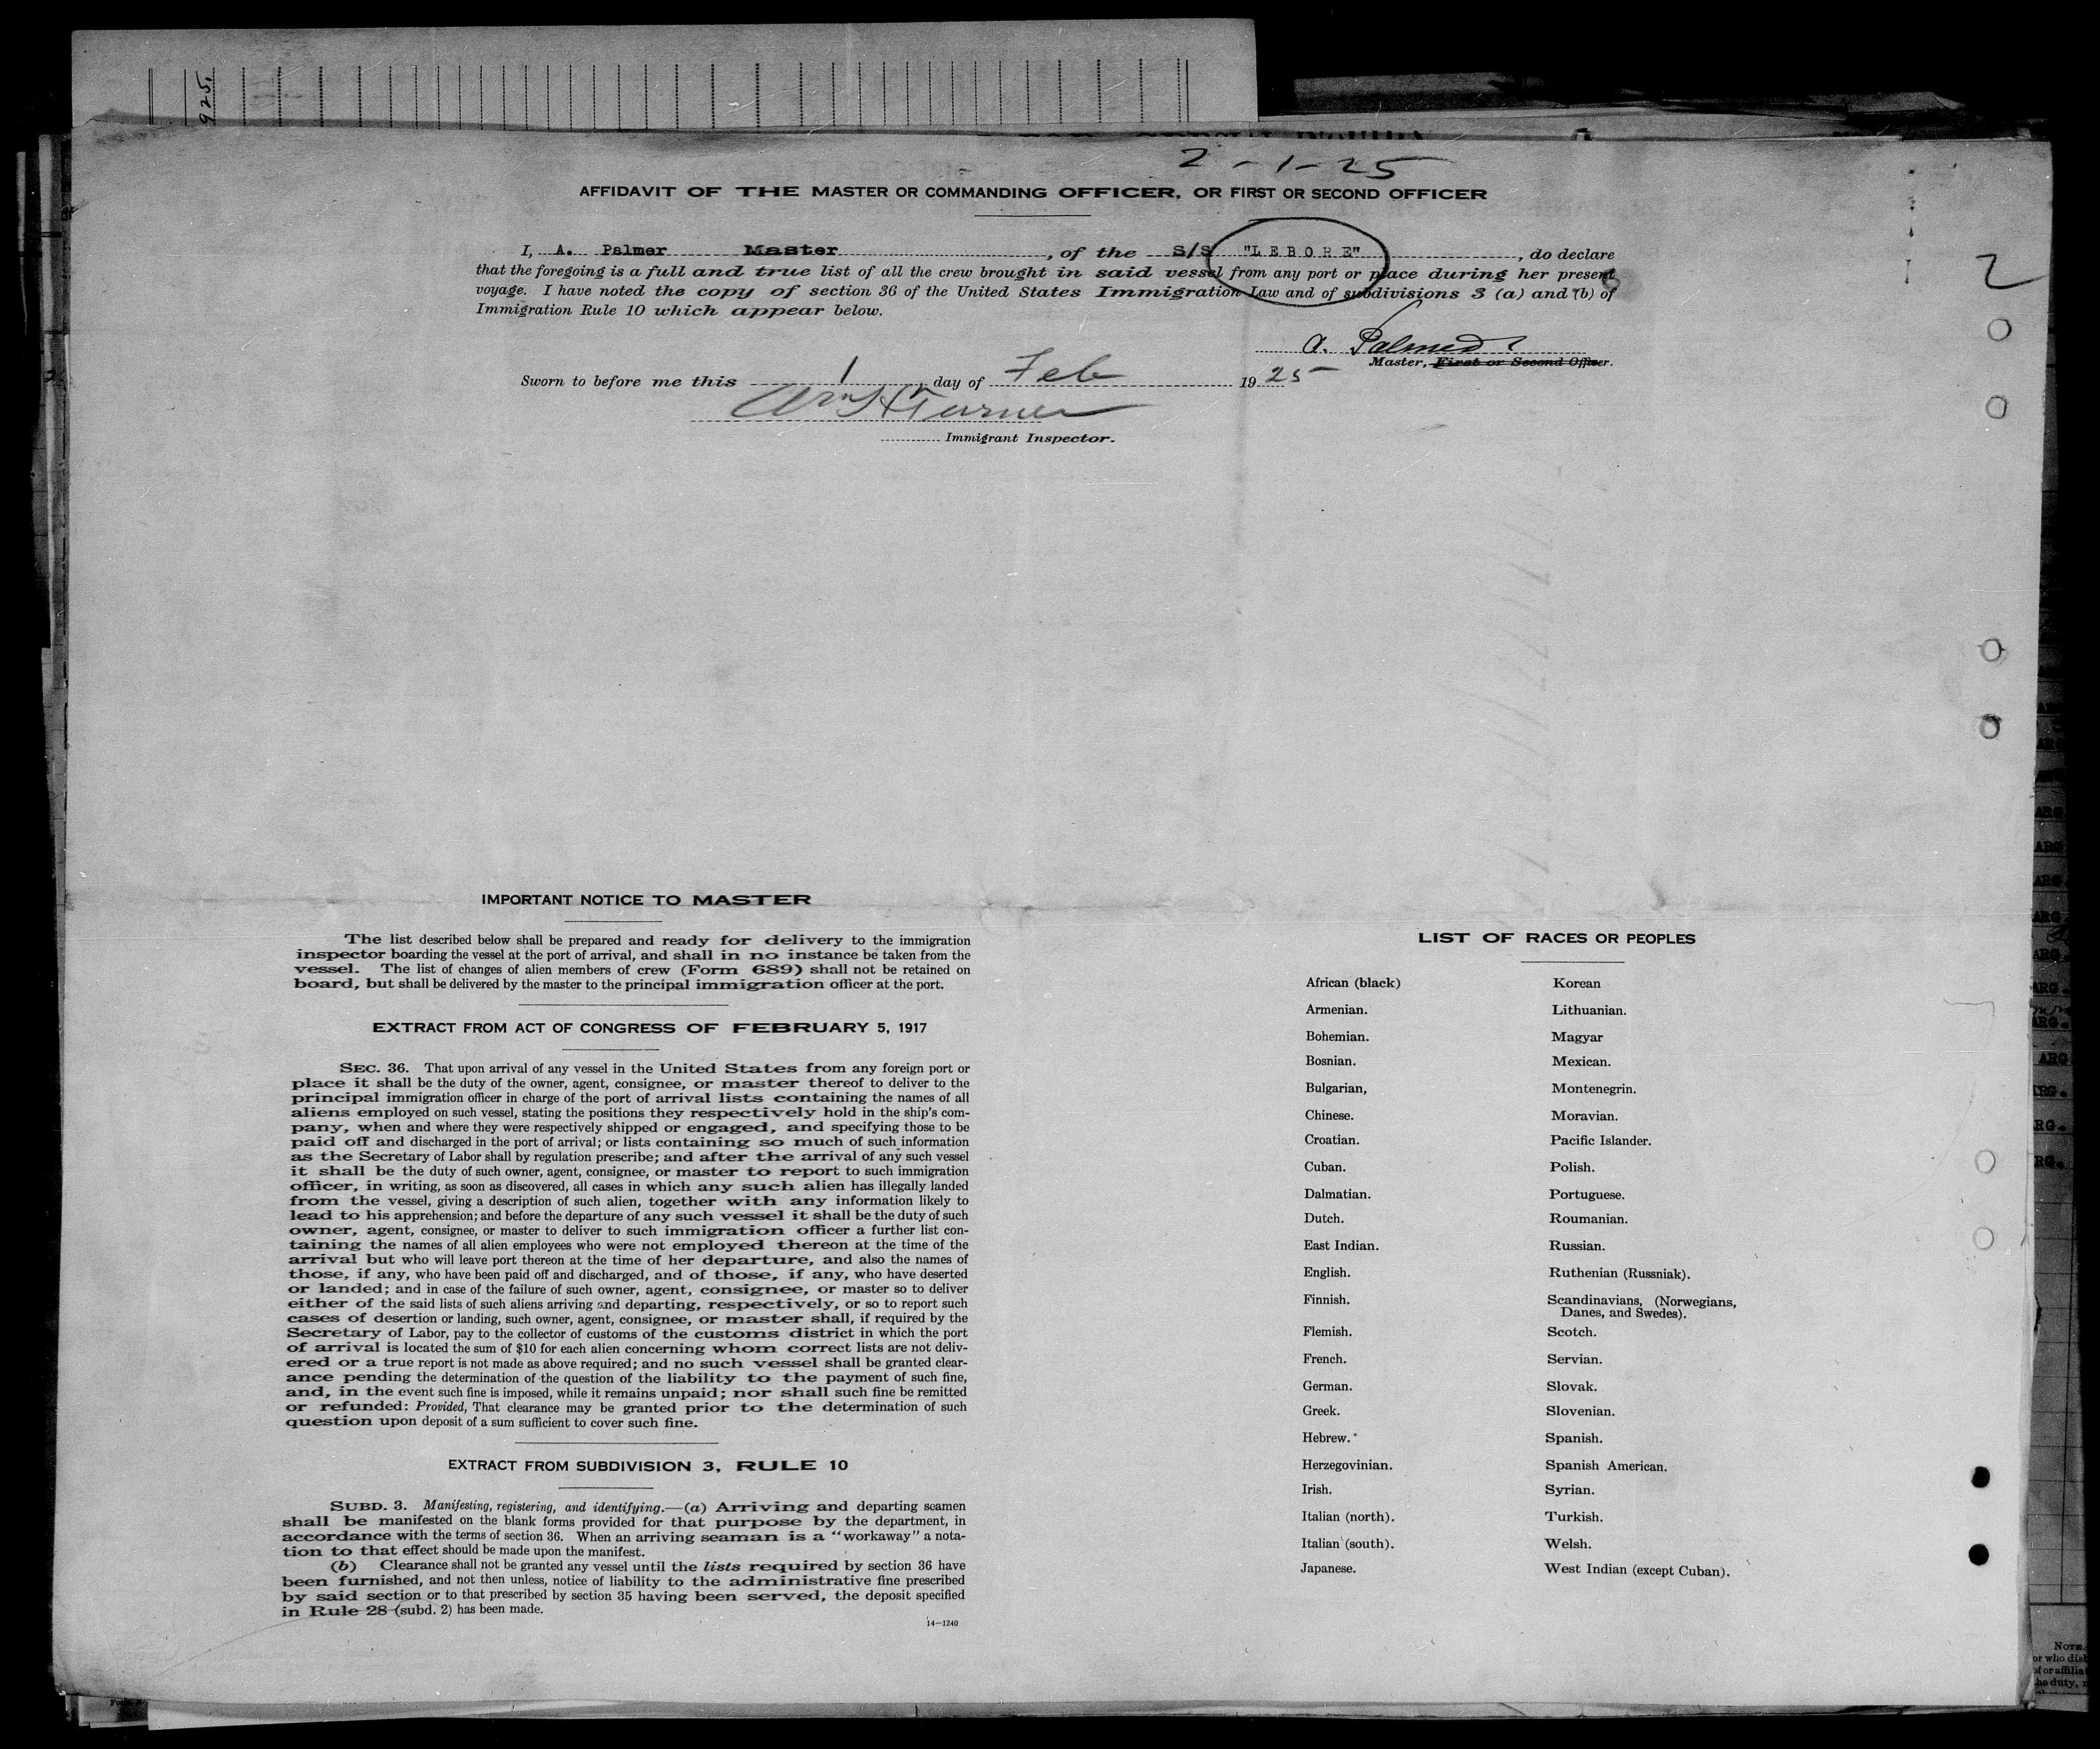 925,
2-1-25
AFFIDAVIT OF THE MASTER OR COMMANDING OFFICER, OR FIRST OR SECOND OFFICER
I, A. Palmer Master, of the S/S "LEBORE", do declare
that the foregoing is a full and true list of all the crew brought in said vessel from any port or place during her present
voyage. I have noted the copy of section 36 of the United States Immigration Law and of subdivisions 3 (a) and (b) of
Immigration Rule 10 which appear below.
2
A. Palmer
Master, First or Second Officer.
Sworn to before me this 1 day of Feb 1925
Wm H Turner
Immigrant Inspector.
IMPORTANT NOTICE TO MASTER
The list described below shall be prepared and ready for delivery to the immigration
inspector boarding the vessel at the port of arrival, and shall in no instance be taken from the
vessel. The list of changes of alien members of crew (Form 689) shall not be retained on
board, but shall be delivered by the master to the principal immigration officer at the port.
EXTRACT FROM ACT OF CONGRESS OF FEBRUARY 5, 1917
SEC. 36. That upon arrival of any vessel in the United States from any foreign port or
place it shall be the duty of the owner, agent, consignee, or master thereof to deliver to the
principal immigration officer in charge of the port of arrival lists containing the names of all
aliens employed on such vessel, stating the positions they respectively hold in the ship's com-
pany, when and where they were respectively shipped or engaged, and specifying those to be
paid off and discharged in the port of arrival; or lists containing so much of such information
as the Secretary of Labor shall by regulation prescribe; and after the arrival of any such vessel
it shall be the duty of such owner, agent, consignee, or master to report to such immigration
officer, in writing, as soon as discovered, all cases in which any such alien has illegally landed
from the vessel, giving a description of such alien, together with any information likely to
lead to his apprehension; and before the departure of any such vessel it shall be the duty of such
owner, agent, consignee, or master to deliver to such immigration officer a further list con-
taining the names of all alien employees who were not employed thereon at the time of the
arrival but who will leave port thereon at the time of her departure, and also the names of
those, if any, who have been paid off and discharged, and of those, if any, who have deserted
or landed; and in case of the failure of such owner, agent, consignee, or master so to deliver
either of the said lists of such aliens arriving and departing, respectively, or so to report such
cases of desertion or landing, such owner, agent, consignee, or master shall, if required by the
Secretary of Labor, pay to the collector of customs of the customs district in which the port
of arrival is located the sum of $10 for each alien concerning whom correct lists are not deliv-
ered or a true report is not made as above required; and no such vessel shall be granted clear-
ance pending the determination of the question of the liability to the payment of such fine,
and, in the event such fine is imposed, while it remains unpaid; nor shall such fine be remitted
or refunded: Provided, That clearance may be granted prior to the determination of such
question upon deposit of a sum sufficient to cover such fine.
EXTRACT FROM SUBDIVISION 3, RULE 10
SUBD. 3. Manifesting, registering, and identifying.—(a) Arriving and departing seamen
shall be manifested on the blank forms provided for that purpose by the department, in
accordance with the terms of section 36. When an arriving seaman is a "workaway" a nota-
tion to that effect should be made upon the manifest.
(b) Clearance shall not be granted any vessel until the lists required by section 36 have
been furnished, and not then unless, notice of liability to the administrative fine prescribed
by said section or to that prescribed by section 35 having been served, the deposit specified
in Rule 28 (subd. 2) has been made.
14—1240
LIST OF RACES OR PEOPLES
African (black)
Armenian.
Bohemian.
Bosnian.
Bulgarian,
Chinese.
Croatian.
Cuban.
Dalmatian.
Dutch.
East Indian.
English.
Finnish.
Flemish.
French.
German.
Greek.
Hebrew.
Herzegovinian.
Irish.
Italian (north).
Italian (south).
Japanese.
Korean
Lithuanian.
Magyar
Mexican.
Montenegrin.
Moravian.
Pacific Islander.
Polish.
Portuguese.
Roumanian.
Russian.
Ruthenian (Russniak).
Scandinavians, (Norwegians,
Danes, and Swedes).
Scotch.
Servian.
Slovak.
Slovenian.
Spanish.
Spanish American.
Syrian.
Turkish.
Welsh.
West Indian (except Cuban).